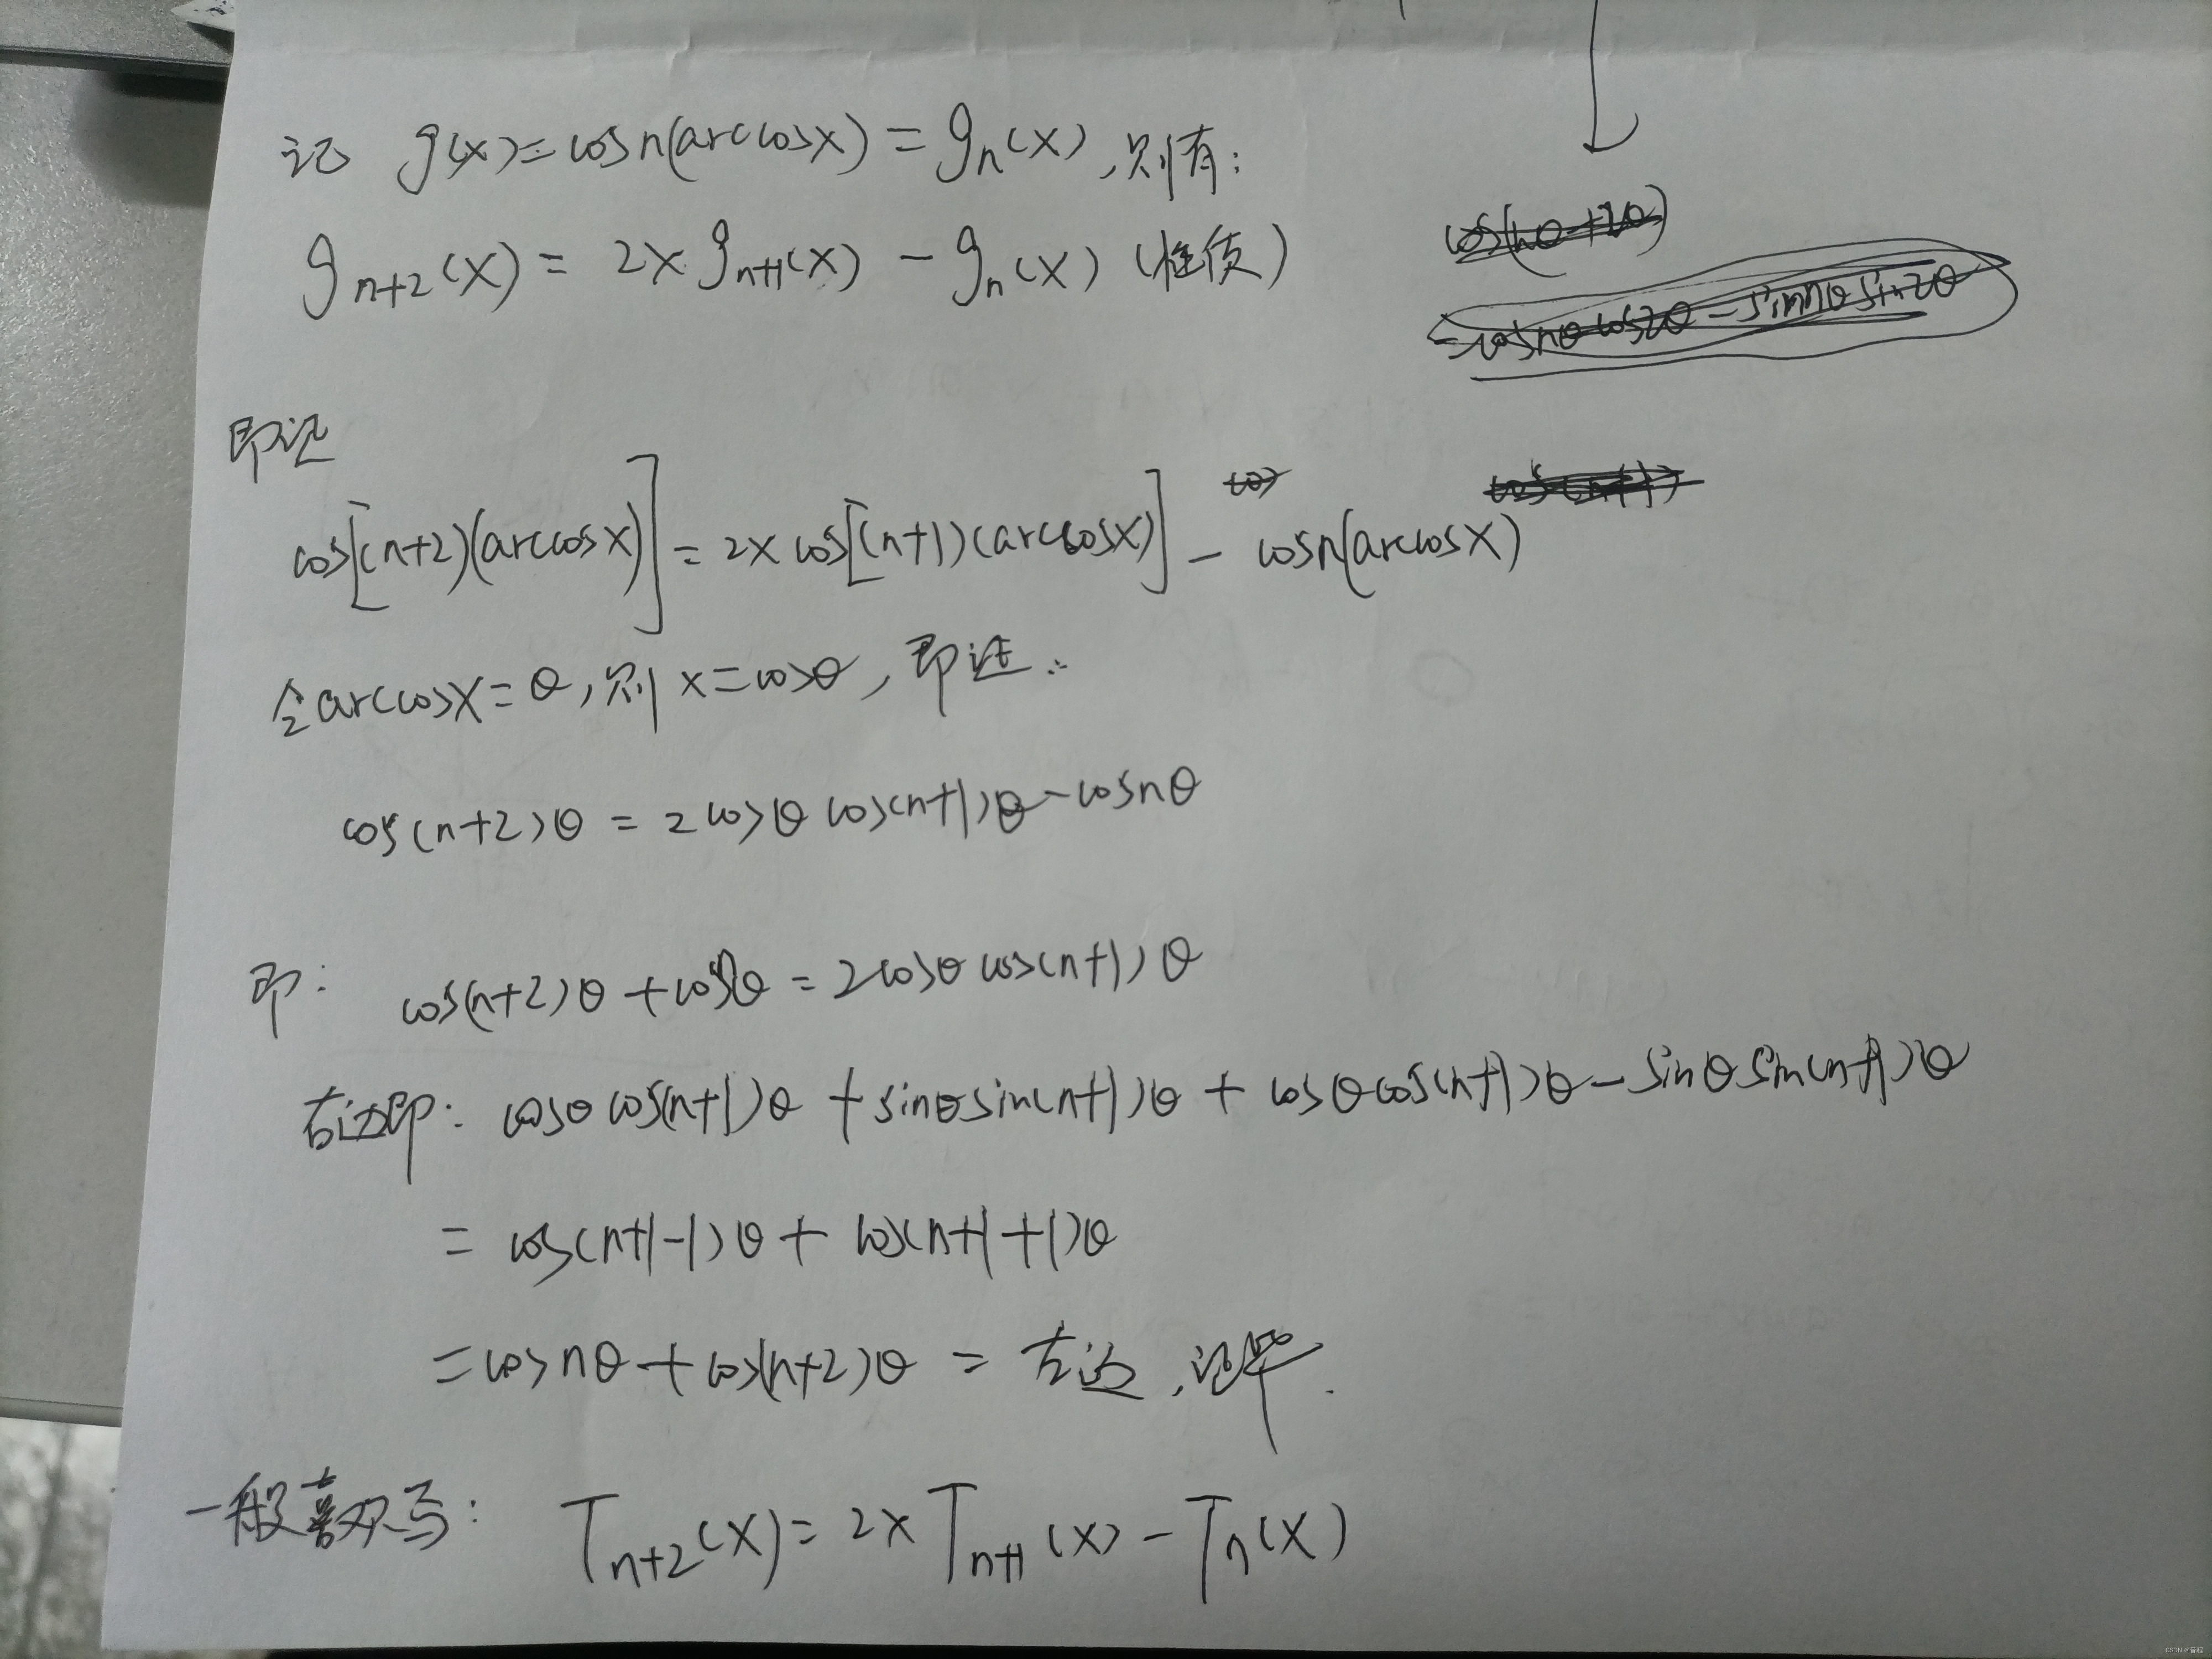 记 g(x)=cosn(arccosx)=gₙ(x),则有:
gₙ₊₂(x)= 2x gₙ₊₁(x) - gₙ(x) (性质)
cos(nθ+2θ)
=cosnθcos2θ-sinnθsin2θ
即证
cos
cos(n+1)
cos[(n+2)(arccosx)]=2xcos[(n+1)(arccosx)]-cosn(arccosx)
令arccosx=θ,则x=cosθ,即证:
cos(n+2)θ=2cosθcos(n+1)θ-cosnθ
即: cos(n+2)θ+cosnθ=2cosθcos(n+1)θ
右边即: cosθcos(n+1)θ+sinθsin(n+1)θ+cosθcos(n+1)θ-sinθsin(n+1)θ
= cos(n+1-1)θ+cos(n+1+1)θ
=cosnθ+cos(n+2)θ=左边,证毕.
一般喜欢写: Tₙ₊₂(x)=2xTₙ₊₁(x)-Tₙ(x)